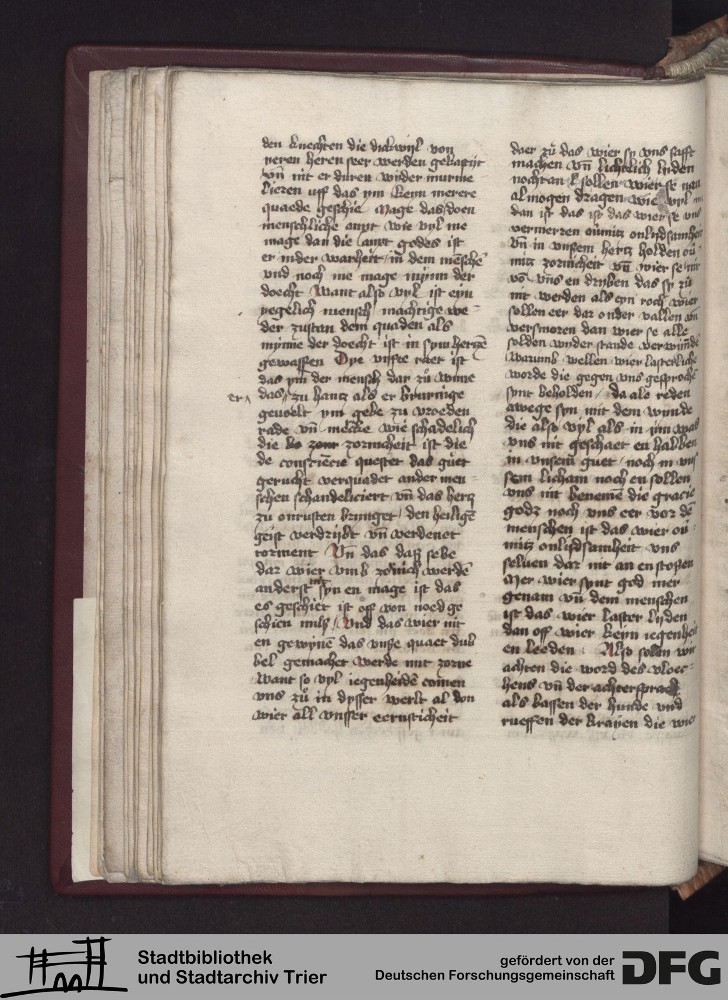 den knechten die dickwijl von
yeren heren seer werden gekastijt
vñ nit er duren wieder murmu
lieren uff das ym keyn merere
quaede geschie Mage das doen
menschliche anxt wie vyl me
mage dan die anxt godes ist
er inder warheit in dem mēsche
vnd noch me mage mynn der
doecht want also vyl ist eyn
yegelich mensch machtige we
der zustan dem quaden als
mynne der doecht ist in sym hertzē
gewassen Dye vnfte raet ist
das ym der mensch dar zů wime
er das zu hantz als er bruninge
geuoelt ym gebe zu vroeden
rade vñ mercke wie schadelich
die zornicheit ist die
de consciēcie quetset das guet
gerucht verquadet ander men
schen schandeliciert vñ das hertz
zu onrusten bringet den heiligē
geist verdrijbt vñ verdenet
torment Vñ das daß sebe
dar wier vmb zornich werdē
anderst nit syn en mage ist das
es geschiet ist off von noed ge
schien muß Vnd das wier nit
en gewynē das vnße quaet dub
bel gemachet werde mit zorne
Want so vyl iegenheidē comen
vns zů in dysser werlt al don
wier all vnsser eernsticheit
daer zů das wier sy vns safft
machen vñ lichtlich lyden
nochtan sollen wier se
al mogen dragen wie vyl
dan ist das ist das wier se vns
vermerzen oůmitz onlijdsamheit
vñ in vnsem hertz holden oů
mitz zornicheit vñ wier se nit
vō vns en dryben das sy zů
nit werden als eyn roch wier
sollen eer dar onder vallen vñ
versmoren dan wier se alle
solden wyder stande verwynnē
Warumb wellen wier lasterliche
worde die gegen vns gesprochē
synt beholden da ale reden
awege syn mit dem wynde
die also vyl als in ym was
vns nit geschaet en halben
in vnsem guet noch in vns
sem licham noch en sollen
vns nit benemē die gracie
godz noch vns eer vor dē
menschen ist das wier oů
mitz onlijdsamheit vns
seluen dar mit an enstossen
Mer wier synt god mer
genam vñ dem menschen
ist das wier laster lyden
dan off wier keyn iegenheit
en leeden Also solen wir
achten die word des vloec
hens vñ der achtersprach
als bassen der hunde vnd
rueffen der krayen die wier
Stadtbibliothek
und Stadtarchiv Trier
gefördert von der
Deutschen Forschungsgemeinschaft
DFG